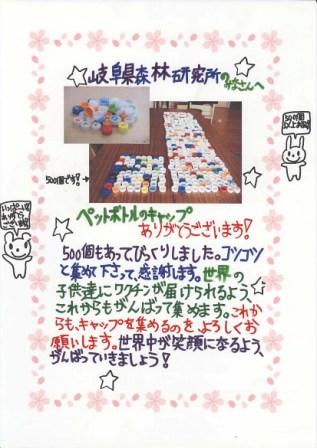 岐阜県森林研究所のみなさんへ
500個です!→
ペットボトルのキャップ
ありがとうございます!
500個もあってびっくりしました。コツコツ
と集めて下さって、感謝します。世界の
子供達にワクチンが届けられるよう、
これからもがんばって集めます。これか
らも、キャップを集めるのをよろしくお
願いします。世界中が笑顔になるよう、
がんばっていきましょう!